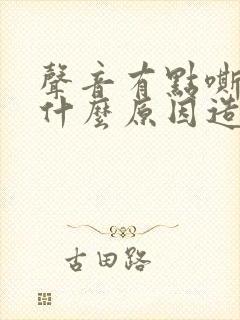 聲音有點嘶
什麼原因造
古田路